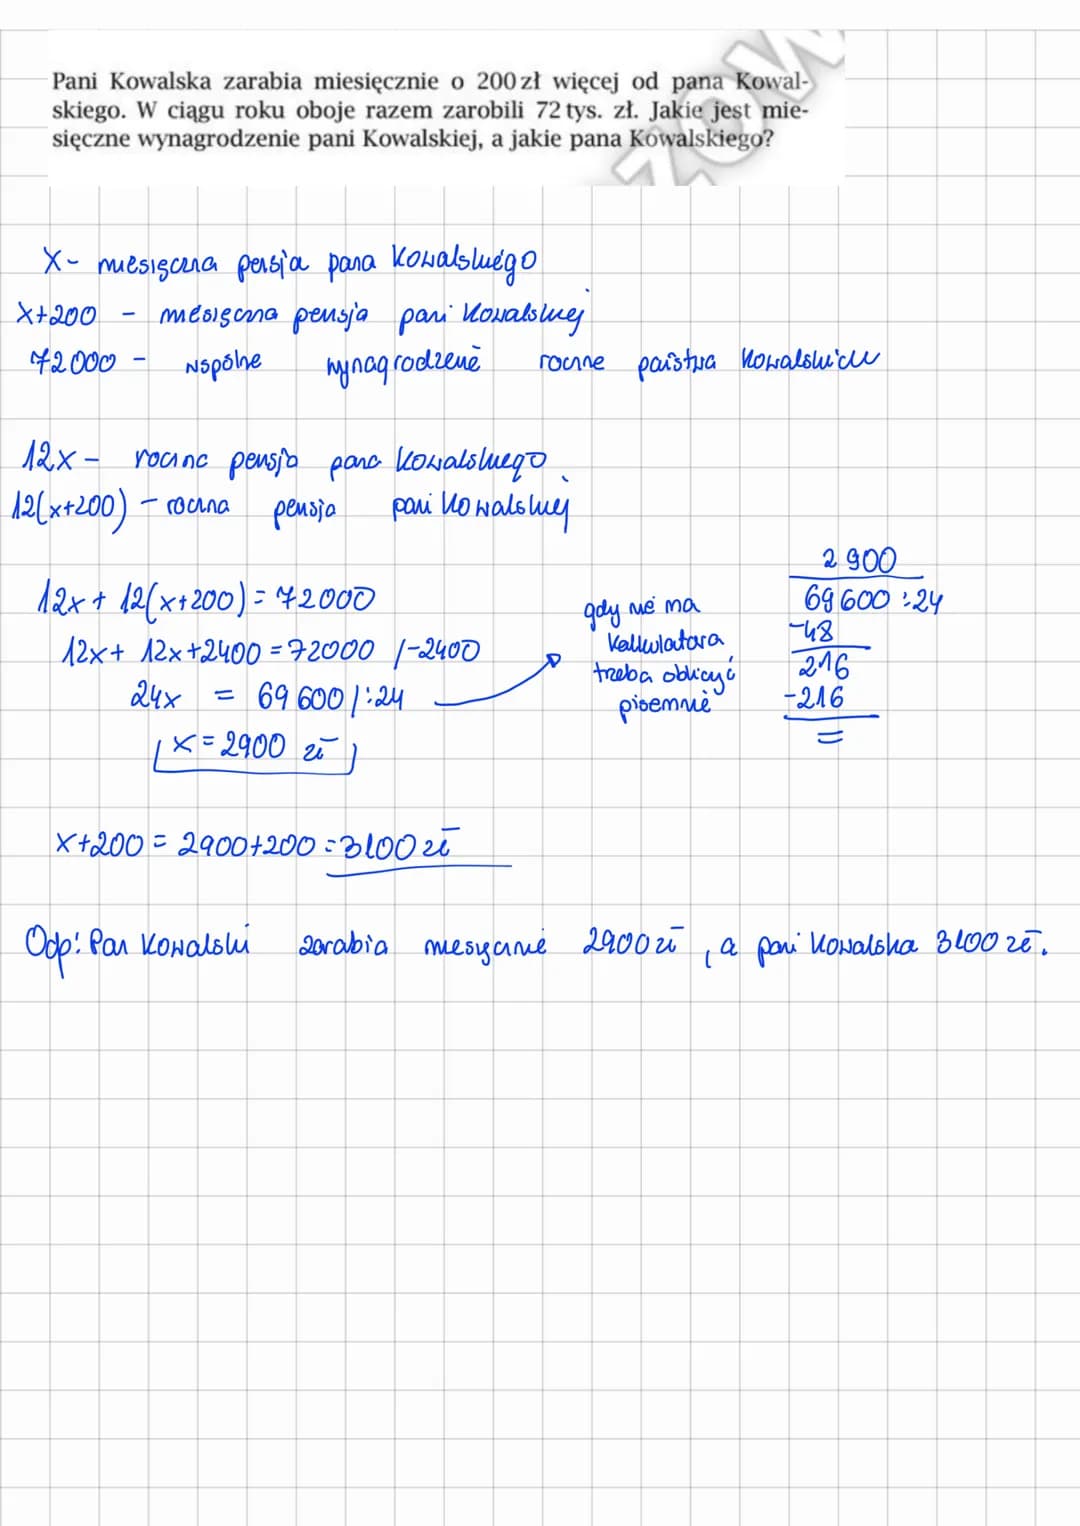 Pani Kowalska zarabia miesięcznie o 200 zł więcej od pana Kowal-
skiego. W ciągu roku oboje razem zarobili 72 tys. zł. Jakie jest mie-
sięczne wynagrodzenie pani Kowalskiej, a jakie pana Kowalskiego?
x - miesięczna pensja pana Kowalskiego
x+200 - miesięczna pensja pani Kowalskiej
72000 - wspólne wynagrodzenie roczne państwa Kowalskich
12x - roczna pensja pana Kowalskiego
12(x+200) - roczna pensja pani Kowalskiej
12x + 12(x+200) = 72000
12x + 12x+2400 = 72000 /-2400
24x = 69 600 /:24
x = 2900 zł
gdy nie ma
kalkulatora
trzeba obliczyć
pisemnie
2 900
69 600 : 24
-48
216
-216
=
x+200 = 2900+200 = 3100 zł
Odp: Pan Kowalski zarabia miesięcznie 2900 zł, a pani Kowalska 3100 zł.